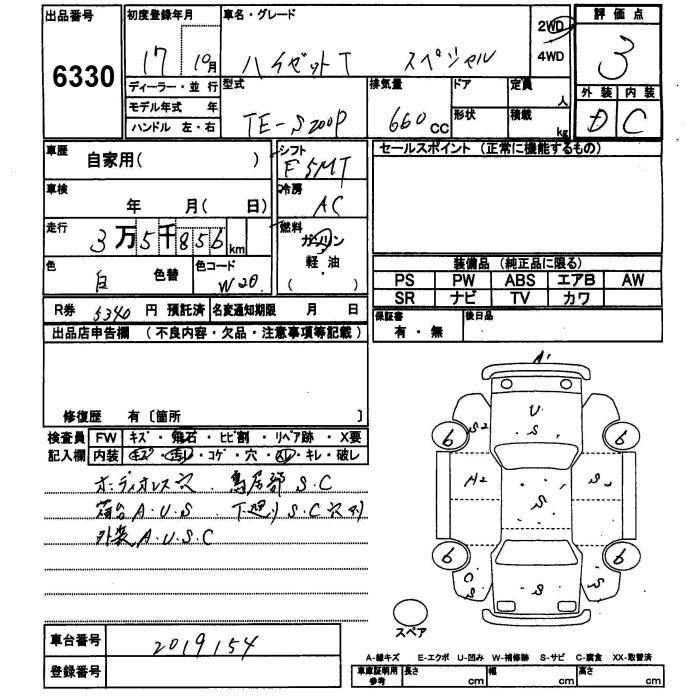 出品番号
6330
初度登録年月
17 10月
ディーラー・並 行
モデル年式 年
ハンドル 左・右
車名・グレード
ハイゼットT スペシャル
2WD
4WD
型式
TE-S200P
排気量
660 cc
ドア
形状
定員
人
積載
kg
評価点
3
外装 内装
D C
車歴
自家用( )
シフト
F5MT
車検
年 月( 日)
冷房
AC
走行
3万5千856 km
燃料
ガソリン
・
軽油
( )
色
白 色替
色コード
W20
R券 5340 円 預託済 名変通知期限 月 日
セールスポイント (正常に機能するもの)
装備品 (純正品に限る)
PS PW ABS エアB AW
SR ナビ TV カワ
保証書
有・無
後日品
出品店申告欄 (不良内容・欠品・注意事項等記載)
修復歴 有〔箇所 〕
検査員 FW キズ・飛石・ヒビ割・リペア跡・X要
記入欄 内装 キズ・汚レ・コゲ・穴・スレ・キレ・破レ
ボディオレス穴 鳥居部 S.C
荷台 A.U.S 下廻り S.C穴有
外装 A.U.S.C
A'
U
S
S2
6
6
A2
S
S
6
6
C
S
S
S
スペア
車台番号 2019154
登録番号
A-線キズ E-エクボ U-凹み W-補修跡 S-サビ C-腐食 XX-取替済
車庫証明用
参考
長さ cm
幅 cm
高さ cm